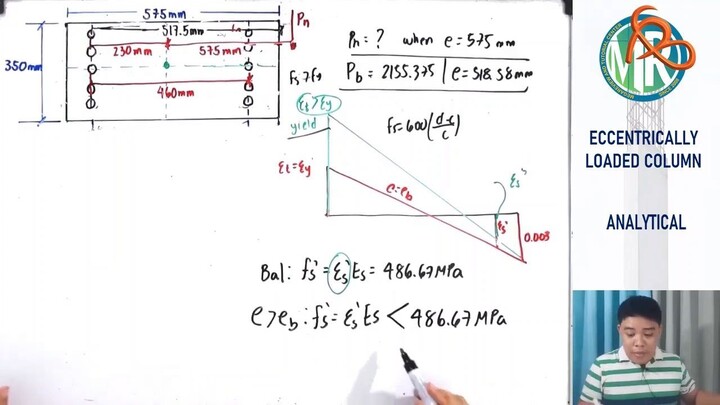 575mm
517.5mm
Pn
230mm 575mm
350mm
460mm
Pn = ? when e = 575 mm
Pb = 2155.375 | e = 518.58mm
fs > fy
εt > εy
yield
fs = 600 (d-c/c)
εt = εy
e = eb
εs'
εs'
0.003
Bal: fs' = εs' Es = 486.67MPa
e > eb : fs' = εs' Es < 486.67 MPa
ECCENTRICALLY
LOADED COLUMN
ANALYTICAL